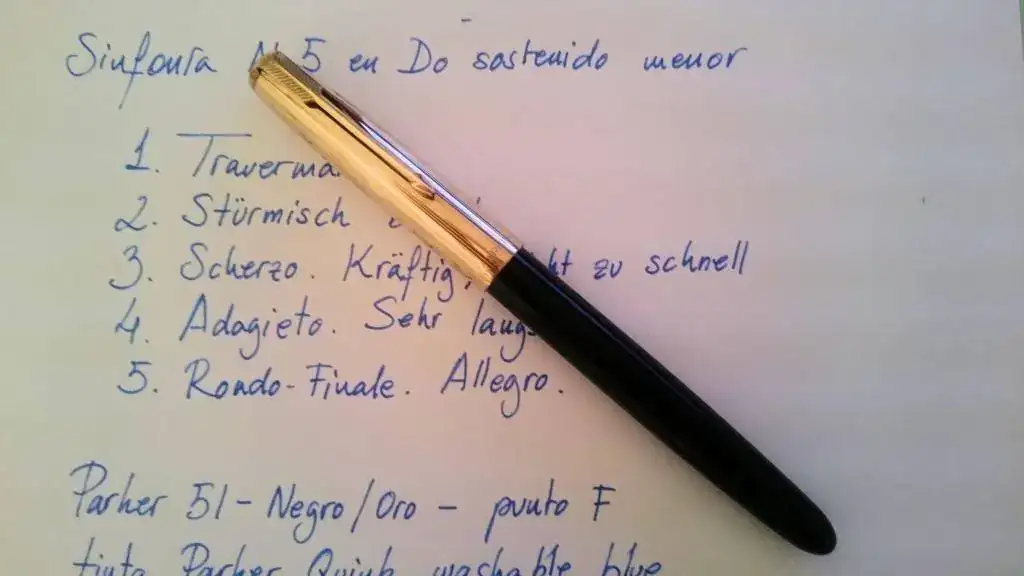 Sinfonía Nº 5 en Do sostenido menor
1. Trauerma
2. Stürmisch
3. Scherzo. Kräftig, ht zu schnell
4. Adagieto. Sehr langs
5. Rondo-Finale. Allegro.
Parker 51 - Negro/Oro - punto F
tinta Parker Quink washable blue